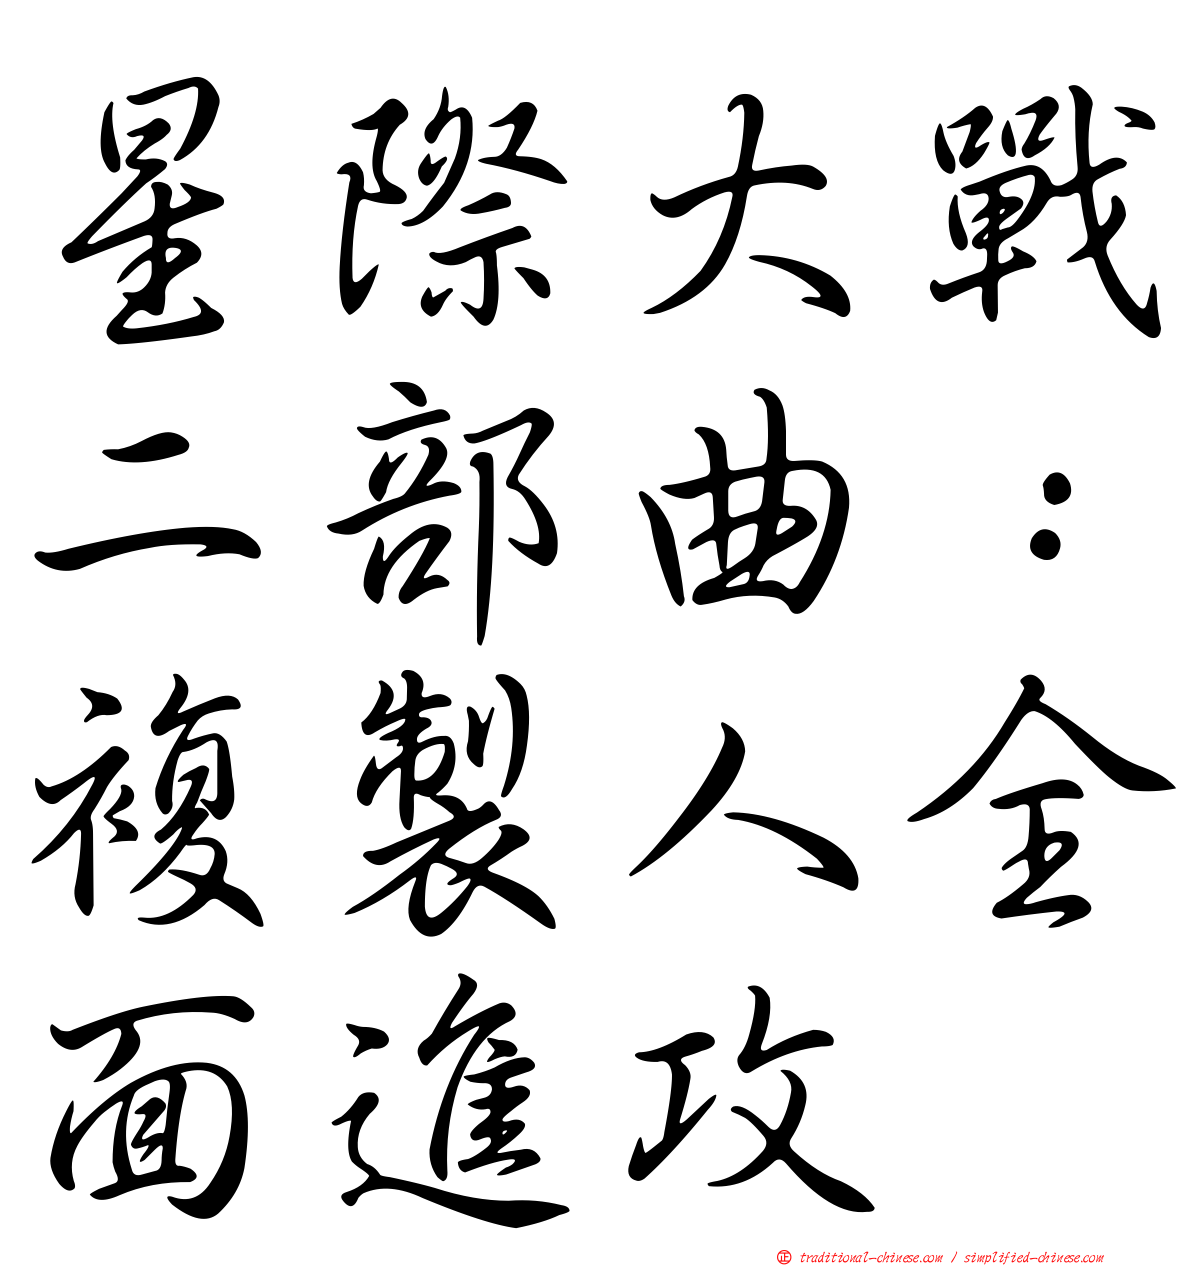 星際大戰
二部曲：
複製人全
面進攻
正 traditional-chinese.com / simplified-chinese.com